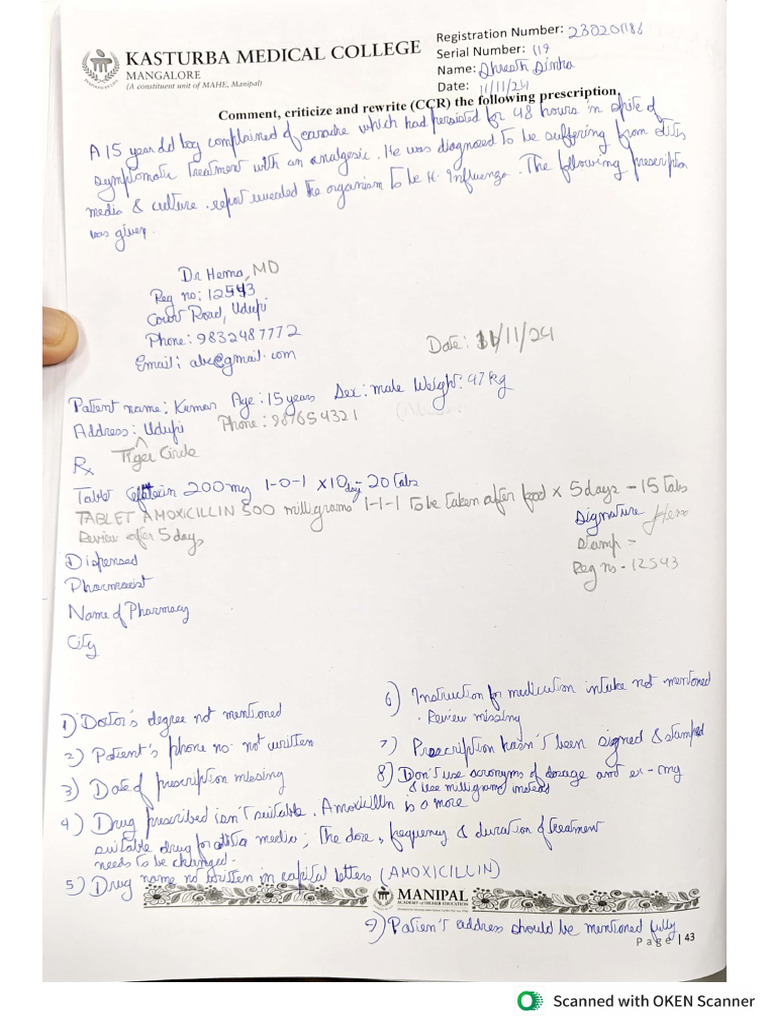 KASTURBA MEDICAL COLLEGE
MANGALORE
(A constituent unit of MAHE, Manipal)
Registration Number: 230201186
Serial Number: 119
Name:
Date: 11/11/24
Comment, criticize and rewrite (CCR) the following prescription.
A 15 year old boy complained of earache which had persisted for 48 hours in spite of
symptomatic treatment with an analgesic. He was diagnosed to be suffering from otitis
media & culture report revealed the organism to be H. Influenza. The following prescription
was given.
Dr Hema, MD
Reg no: 12543
Court Road, Udupi
Phone: 9832487772
Email: abc@gmail.com
Date: 11/11/24
Patient name: Kumar Age: 15 years Sex: male Weight: 47 kg
Address: Udupi Phone: 987654321
Tiger Circle
Rx
Tablet 200mg 1-0-1 x 10 days - 20 tabs
TABLET AMOXICILLIN 500 milligrams 1-1-1 To be taken after food x 5 days - 15 tabs
Review after 5 days
Signature
Stamp -
Reg no - 12543
Dispensed
Pharmacist
Name of Pharmacy
City
1) Doctor's degree not mentioned
2) Patient's phone no. not written
3) Date of prescription missing
4) Drug prescribed isn't suitable. Amoxicillin is a more
suitable drug for otitis media; The dose, frequency & duration of treatment
needs to be changed.
5) Drug name not written in capital letters (AMOXICILLIN)
6) Instruction for medication intake not mentioned
. Review missing
7) Prescription hasn't been signed & stamped
8) Don't use acronyms of dosage amt ex - mg
& use milligrams instead
9) Patient's address should be mentioned fully
MANIPAL
ACADEMY of HIGHER EDUCATION
Page | 43
Scanned with OKEN Scanner